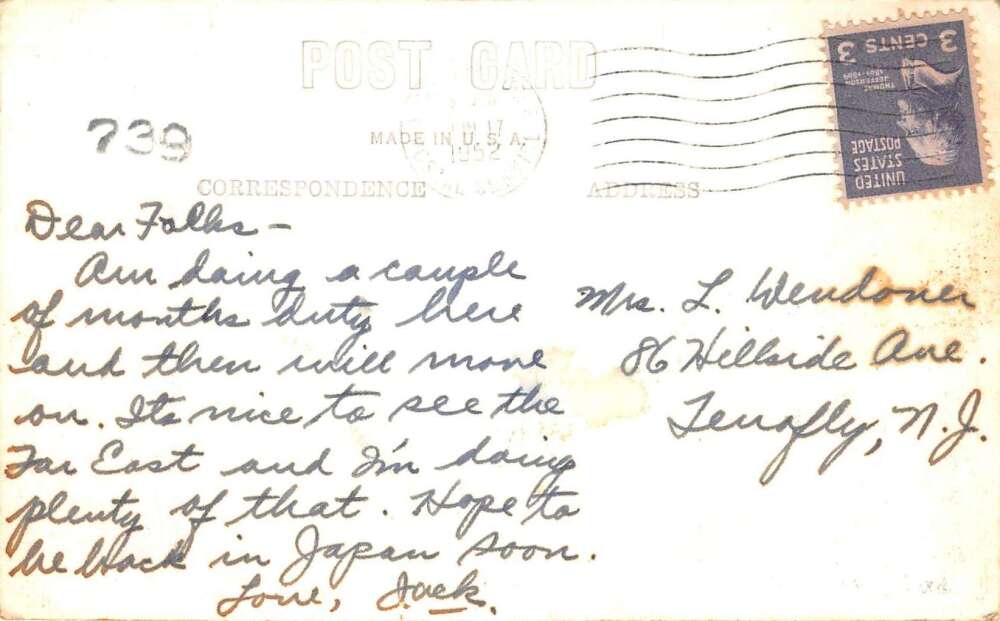 POST CARD
3 CENTS 3
THOMAS
JEFFERSON
1801-1809
UNITED
STATES
POSTAGE
739
MADE IN U.S.A.
17
1952
CORRESPONDENCE
ADDRESS
Dear Folks —
Am doing a couple
of months duty here
and then will move
on. Its nice to see the
Far East and I'm doing
plenty of that. Hope to
be back in Japan soon.
Love, Jack.
Mrs. L. Wendover
86 Hillside Ave.
Tenafly, N.J.